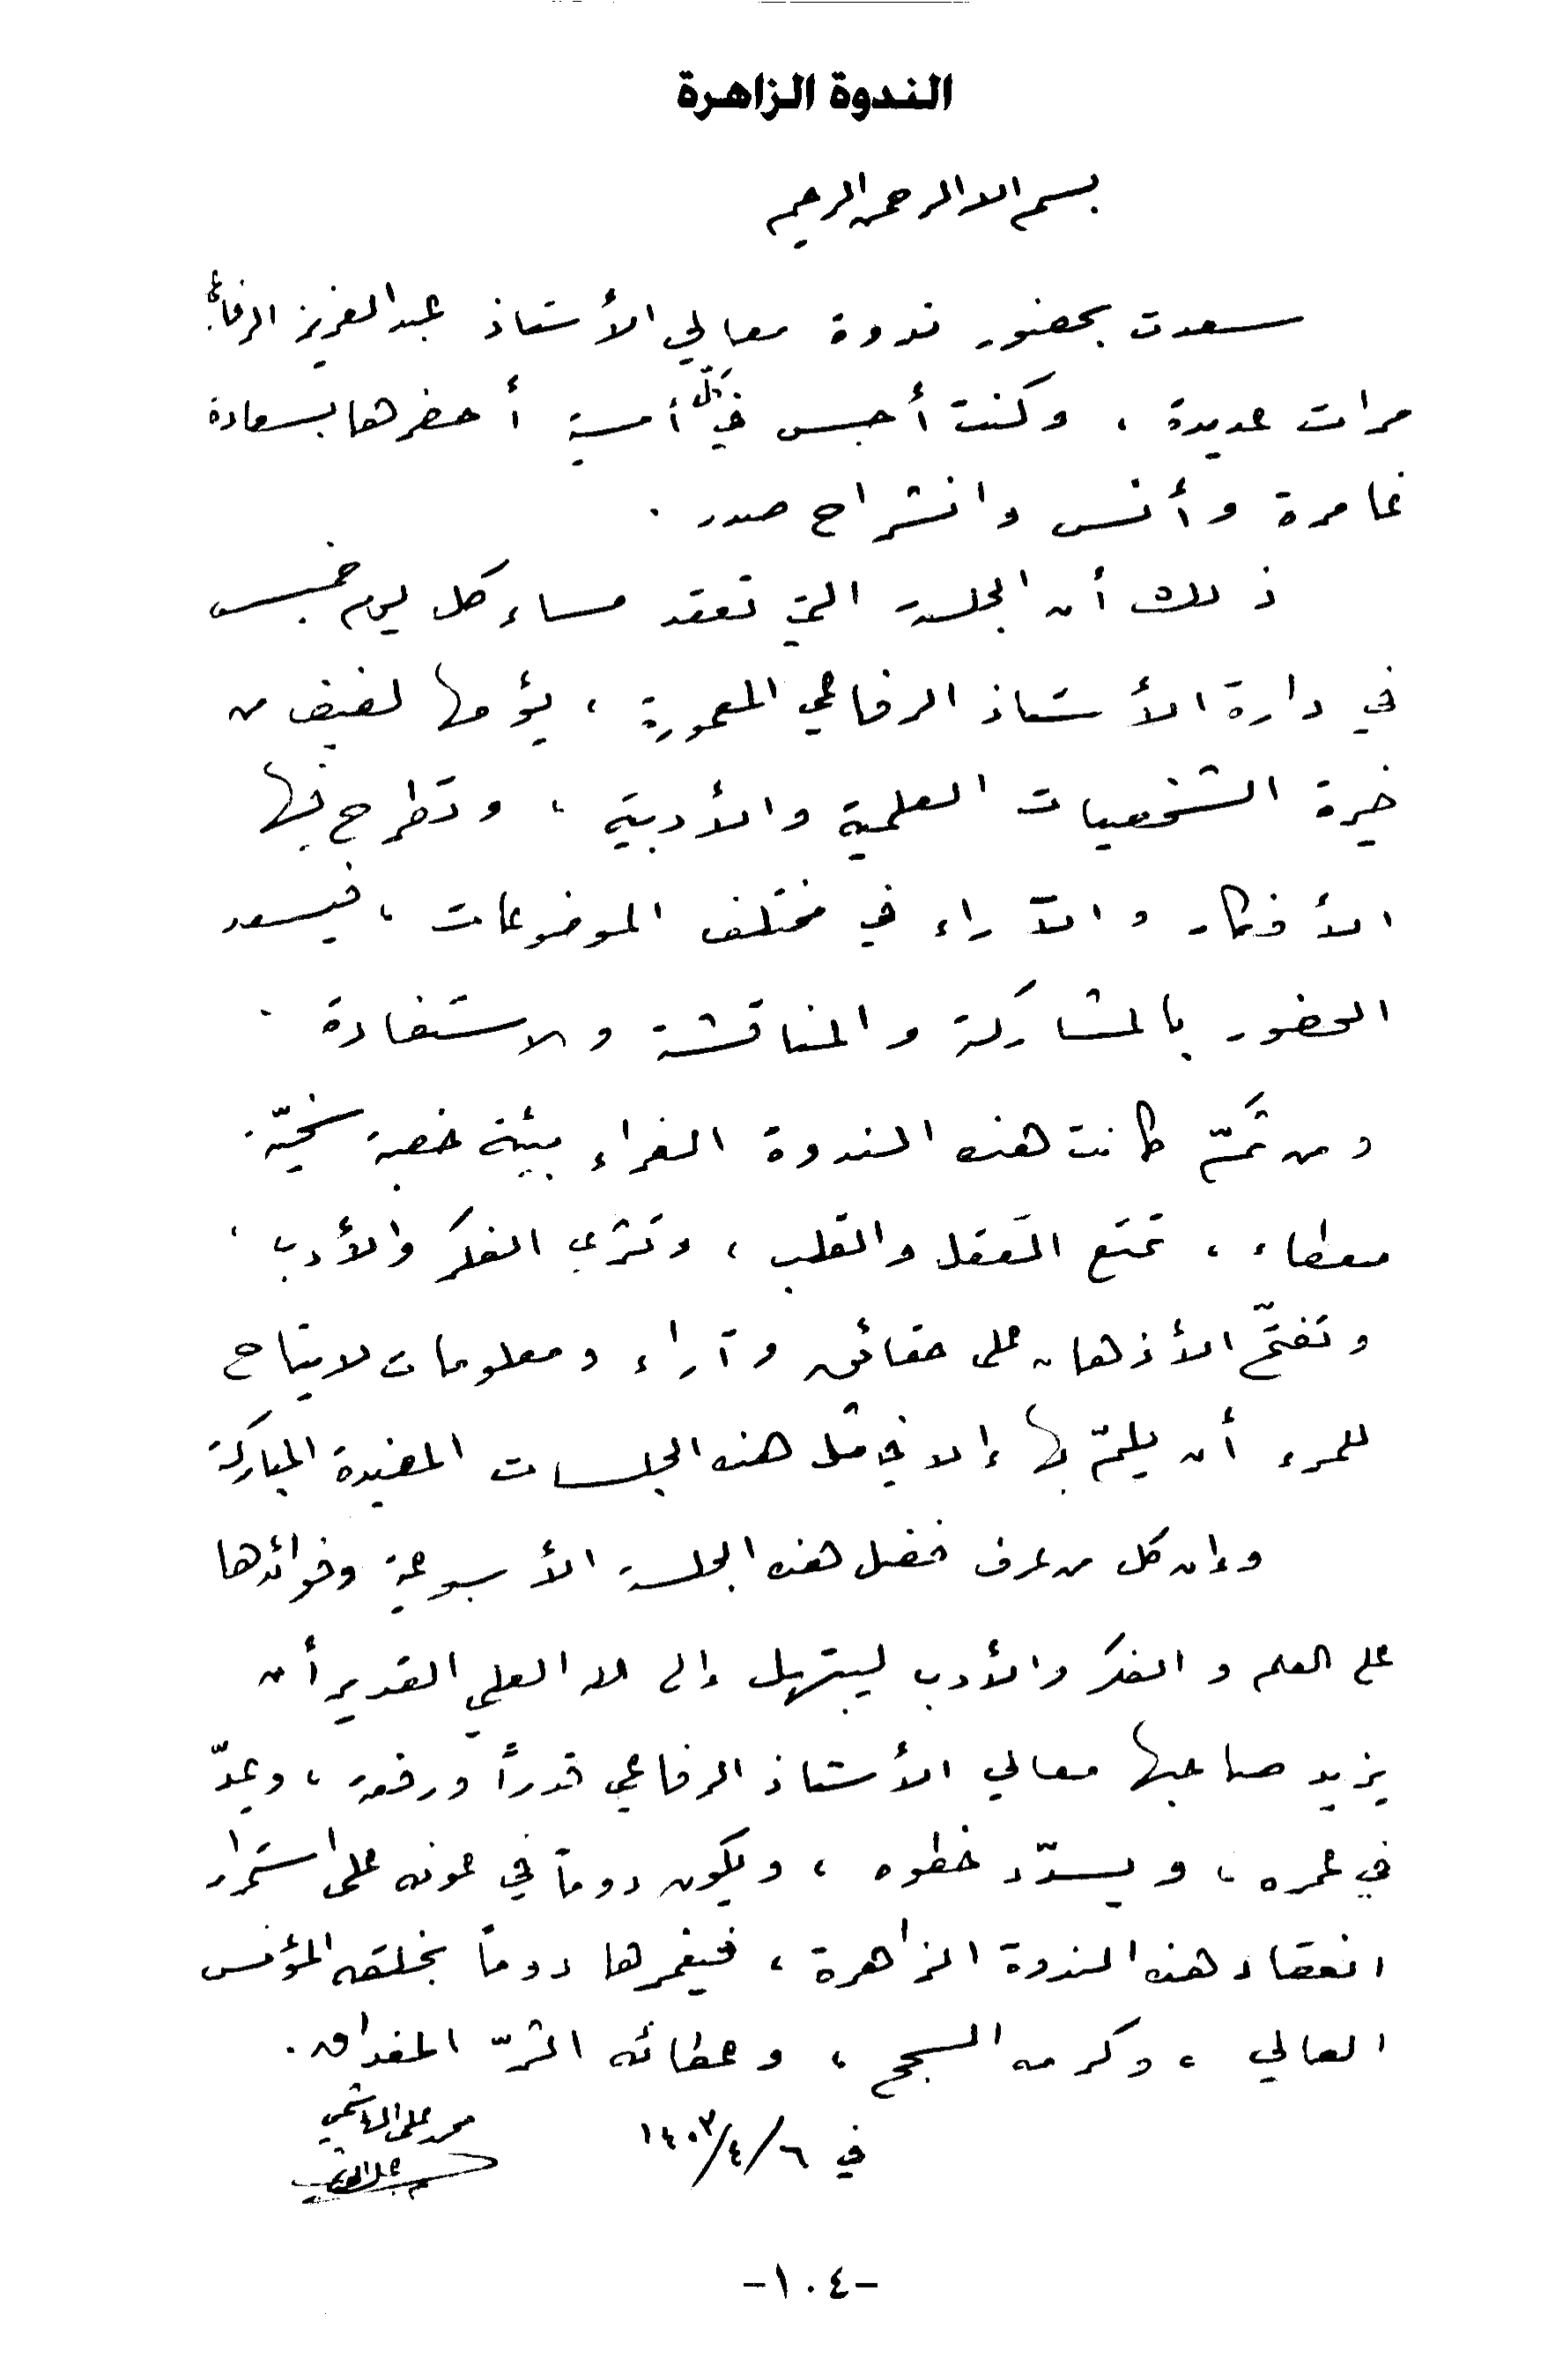 الندوة الزاهرة
بسم الله الرحمن الرحيم
سعدت بحضور ندوة معالي الأستاذ عبد العزيز الرفاعي
مرات عديدة ، وكنت أحس في كلّ أمسية أحضرها بسعادة
غامرة وأنس وانشراح صدر .
ذلك أن الجلسة التي تعقد مساء كل يوم خميس
في دارة الأستاذ الرفاعي المعمورة ، يؤمها لفيف من
خيرة الشخصيات العلمية والأدبية ، وتطرح فيها
الأفكار والآراء في مختلف الموضوعات ، فيسعد
الحضور بالمشاركة والمناقشة والاستفادة .
ومن ثَمّ كانت هذه الندوة الغراء بيئة خصبة سخيّة
معطاء ، تمتع العقل والقلب ، وتثري الفكر والأدب ،
وتفتّح الأذهان على حقائق وآراء ومعلومات لا يتاح
للمرء أن يلمّ بها إلا في مثل هذه الجلسات المفيدة المباركة
وإن كل من عرف فضل هذه الجلسة الأسبوعية وفوائدها
على العلم والفكر والأدب ليبتهل إلى الله العلي القدير أن
يزيد صاحبها معالي الأستاذ الرفاعي قدراً ورفعة ، ويمدّ
في عمره ، ويسدّد خطوه ، ويكون دوماً في عونه على استمرار
انعقاد هذه الندوة الزاهرة ، فيغمرها دوماً بخلقه المؤنس
العالي ، وكرمه السجح ، وعطائه الثرّ المغداق .
محمد علي الهاشمي
في ٦/٤/١٤٠٣
-١٠٤-